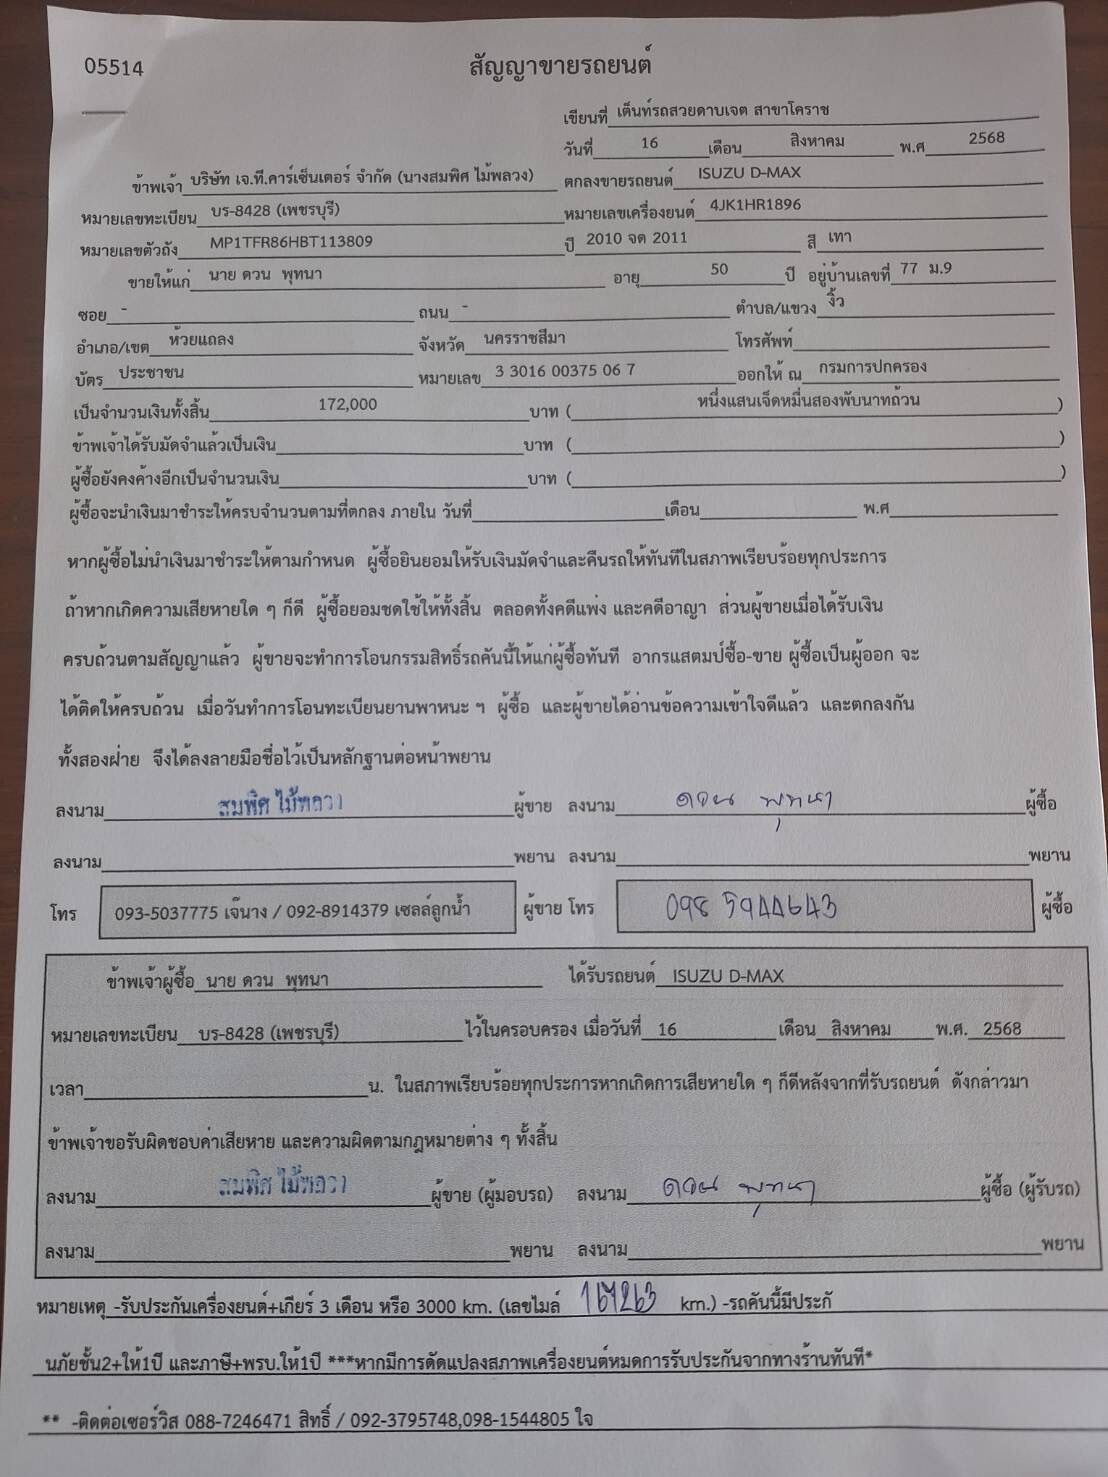 05514
สัญญาขายรถยนต์
เขียนที่ เต็นท์รถสวยดาบเจต สาขาโคราช
วันที่ 16 เดือน สิงหาคม พ.ศ 2568
ข้าพเจ้า บริษัท เจ.ที.คาร์เซ็นเตอร์ จำกัด (นางสมพิศ ไม้พลวง) ตกลงขายรถยนต์ ISUZU D-MAX
หมายเลขทะเบียน บร-8428 (เพชรบุรี) หมายเลขเครื่องยนต์ 4JK1HR1896
หมายเลขตัวถัง MP1TFR86HBT113809 ปี 2010 จด 2011 สี เทา
ขายให้แก่ นาย ดวน พุทนา อายุ 50 ปี อยู่บ้านเลขที่ 77 ม.9
ซอย - ถนน - ตำบล/แขวง งิ้ว
อำเภอ/เขต ห้วยแถลง จังหวัด นครราชสีมา โทรศัพท์
บัตร ประชาชน หมายเลข 3 3016 00375 06 7 ออกให้ ณ กรมการปกครอง
เป็นจำนวนเงินทั้งสิ้น 172,000 บาท ( หนึ่งแสนเจ็ดหมื่นสองพับนาทถ้วน )
ข้าพเจ้าได้รับมัดจำแล้วเป็นเงิน บาท ( )
ผู้ซื้อยังคงค้างอีกเป็นจำนวนเงิน บาท ( )
ผู้ซื้อจะนำเงินมาชำระให้ครบจำนวนตามที่ตกลง ภายใน วันที่ เดือน พ.ศ
หากผู้ซื้อไม่นำเงินมาชำระให้ตามกำหนด ผู้ซื้อยินยอมให้รับเงินมัดจำและคืนรถให้ทันทีในสภาพเรียบร้อยทุกประการ
ถ้าหากเกิดความเสียหายใด ๆ ก็ดี ผู้ซื้อยอมชดใช้ให้ทั้งสิ้น ตลอดทั้งคดีแพ่ง และคดีอาญา ส่วนผู้ขายเมื่อได้รับเงิน
ครบถ้วนตามสัญญาแล้ว ผู้ขายจะทำการโอนกรรมสิทธิ์รถคันนี้ให้แก่ผู้ซื้อทันที อากรแสตมป์ซื้อ-ขาย ผู้ซื้อเป็นผู้ออก จะ
ได้ติดให้ครบถ้วน เมื่อวันทำการโอนทะเบียนยานพาหนะ ฯ ผู้ซื้อ และผู้ขายได้อ่านข้อความเข้าใจดีแล้ว และตกลงกัน
ทั้งสองฝ่าย จึงได้ลงลายมือชื่อไว้เป็นหลักฐานต่อหน้าพยาน
ลงนาม สมพิศ ไม้พลวง ผู้ขาย ลงนาม ดวน พุทนา ผู้ซื้อ
ลงนาม พยาน ลงนาม พยาน
โทร 093-5037775 เจ๊นาง / 092-8914379 เซลล์ลูกน้ำ ผู้ขาย โทร 098 5944643 ผู้ซื้อ
ข้าพเจ้าผู้ซื้อ นาย ดวน พุทนา ได้รับรถยนต์ ISUZU D-MAX
หมายเลขทะเบียน บร-8428 (เพชรบุรี) ไว้ในครอบครอง เมื่อวันที่ 16 เดือน สิงหาคม พ.ศ. 2568
เวลา น. ในสภาพเรียบร้อยทุกประการหากเกิดการเสียหายใด ๆ ก็ดีหลังจากที่รับรถยนต์ ดังกล่าวมา
ข้าพเจ้าขอรับผิดชอบค่าเสียหาย และความผิดตามกฎหมายต่าง ๆ ทั้งสิ้น
ลงนาม สมพิศ ไม้พลวง ผู้ขาย (ผู้มอบรถ) ลงนาม ดวน พุทนา ผู้ซื้อ (ผู้รับรถ)
ลงนาม พยาน ลงนาม พยาน
หมายเหตุ -รับประกันเครื่องยนต์+เกียร์ 3 เดือน หรือ 3000 km. (เลขไมล์ km.) -รถคันนี้มีประกั
นภัยชั้น2+ให้1ปี และภาษี+พรบ.ให้1ปี ***หากมีการดัดแปลงสภาพเครื่องยนต์หมดการรับประกันจากทางร้านทันที*
** -ติดต่อเซอร์วิส 088-7246471 สิทธิ์ / 092-3795748,098-1544805 ใจ